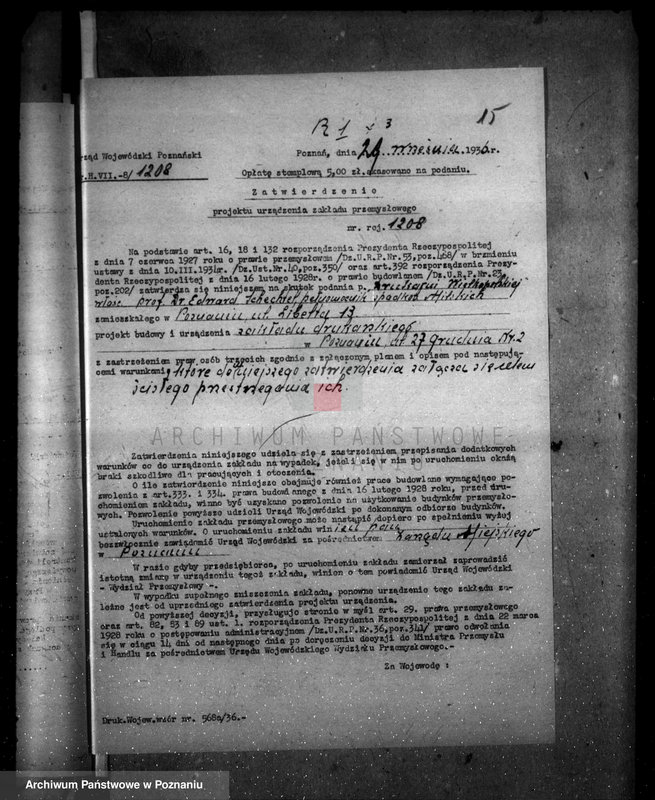 R 1 x 3
15
rząd Wojewódzki Poznański
Poznań, dnia 26 września 1936r.
r.H.VII.-8/1208
Opłatę stemplową 5,00 zł.skasowano na podaniu.
Zatwierdzenie
projektu urządzenia zakładu przemysłowego
nr. rej. 1208
Na podstawie art. 16, 18 i 132 rozporządzenia Prezydenta Rzeczypospolitej
z dnia 7 czerwca 1927 roku o prawie przemysłowem /Dz.U.R.P.Nr.53,poz.468/ w brzmieniu
ustawy z dnia 10.III.1934r. /Dz.Ust.Nr.40,poz.350/ oraz art.392 rozporządzenia Prezy-
denta Rzeczypospolitej z dnia 16 lutego 1928r. o prawie budowlanem /Dz.U.R.P.Nr.23,
poz.202/ zatwierdza się niniejszem na skutek podania p. Drukarni Wielkopolskiej
właśc. prof. Dr. Edward Schechtel pełnomocnik spadkob.
zamieszkałego w Poznaniu, ul. Libelta 13
projekt budowy i urządzenia zakładu drukarskiego
w Poznaniu, ul. 27 Grudnia Nr. 2
z zastrzeżeniem praw osób trzecich zgodnie z załączonym planem i opisem pod następują-
cemi warunkami, które do niniejszego zatwierdzenia załącza się celem
ścisłego przestrzegania ich.
ARCHIWUM PAŃSTWOWE
Zatwierdzenia niniejszego udziela się z zastrzeżeniem przepisania dodatkowych
warunków co do urządzenia zakładu na wypadek, jeżeli się w nim po uruchomieniu okażą
braki szkodliwe dla pracujących i otoczenia.
O ile zatwierdzenie niniejsze obejmuje również prace budowlane wymagające po-
zwolenia z art.333. i 334. prawa budowlanego z dnia 16 lutego 1928 roku, przed uru-
chomieniem zakładu, winno być uzyskane pozwolenie na użytkowanie budynków przemysło-
wych. Pozwolenie powyższe udzieli Urząd Wojewódzki po dokonanym odbiorze budynków.
Uruchomienie zakładu przemysłowego może nastąpić dopiero po spełnieniu wyżej
ustalonych warunków. O uruchomieniu zakładu winien Pan
bezzwłocznie zawiadomić Urząd Wojewódzki za pośrednictwem Zarządu Miejskiego
w Poznaniu
W razie gdyby przedsiębiorca, po uruchomieniu zakładu zamierzał zaprowadzić
istotną zmianę w urządzeniu tegoż zakładu, winien o tem powiadomić Urząd Wojewódzki
- Wydział Przemysłowy -.
W wypadku zupełnego zniszczenia zakładu, ponowne urządzenie tego zakładu za-
leżne jest od uprzedniego zatwierdzenia projektu urządzenia.
Od powyższej decyzji, przysługuje stronie w myśl art. 29. prawa przemysłowego
oraz art. 82, 83 i 89 ust. 1. rozporządzenia Prezydenta Rzeczypospolitej z dnia 22 marca
1928 roku o postępowaniu administracyjnem /Dz.U.R.P.Nr.36,poz.341/ prawo odwołania
się w ciągu 14 dni od następnego dnia po doręczeniu decyzji do Ministra Przemysłu
i Handlu za pośrednictwem Urzędu Wojewódzkiego Wydziału Przemysłowego.-
Za Wojewodę :
Druk.Wojew.wzór nr. 568a/36.-
Archiwum Państwowe w Poznaniu